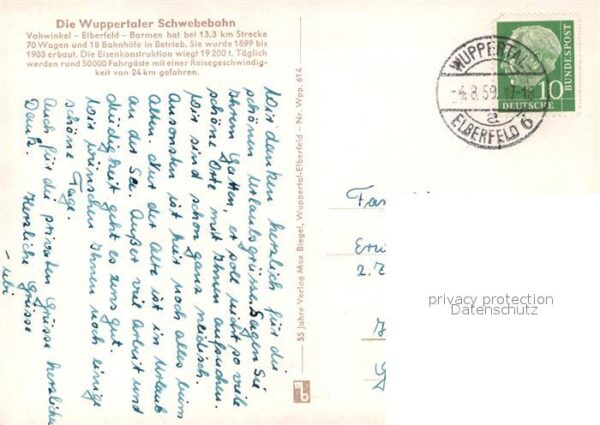 Die Wuppertaler Schwebebahn
Vohwinkel - Elberfeld - Barmen hat bei 13,3 km Strecke
70 Wagen und 18 Bahnhöfe in Betrieb. Sie wurde 1899 bis
1903 erbaut. Die Eisenkonstruktion wiegt 19 200 t. Täglich
werden rund 50000 Fahrgäste mit einer Reisegeschwindig-
keit von 24 km gefahren.
Wir danken herzlich für die
schönen Urlaubsgrüsse. Sagen Sie
Ihrem Gatten, er soll nicht so viele
schöne Orte mit Ihnen aufsuchen.
Wir sind schon ganz neidisch.
Ansonsten ist hier noch alles beim
Alten. Nur der Alte ist in Bremen
an der See. Außer viel Arbeit und
geht es uns gut.
Wir wünschen Ihnen noch einige
schöne Tage.
Auch für die privaten Grüsse herzlichen
Dank. Herzliche Grüsse
55 Jahre Verlag Max Biegel, Wuppertal-Elberfeld - Nr. Wpp. 614
mb
WUPPERTAL-
-4.8.59.17-18
a
ELBERFELD 6
10
DEUTSCHE
BUNDESPOST
Fam
2.Z
privacy protection
Datenschutz